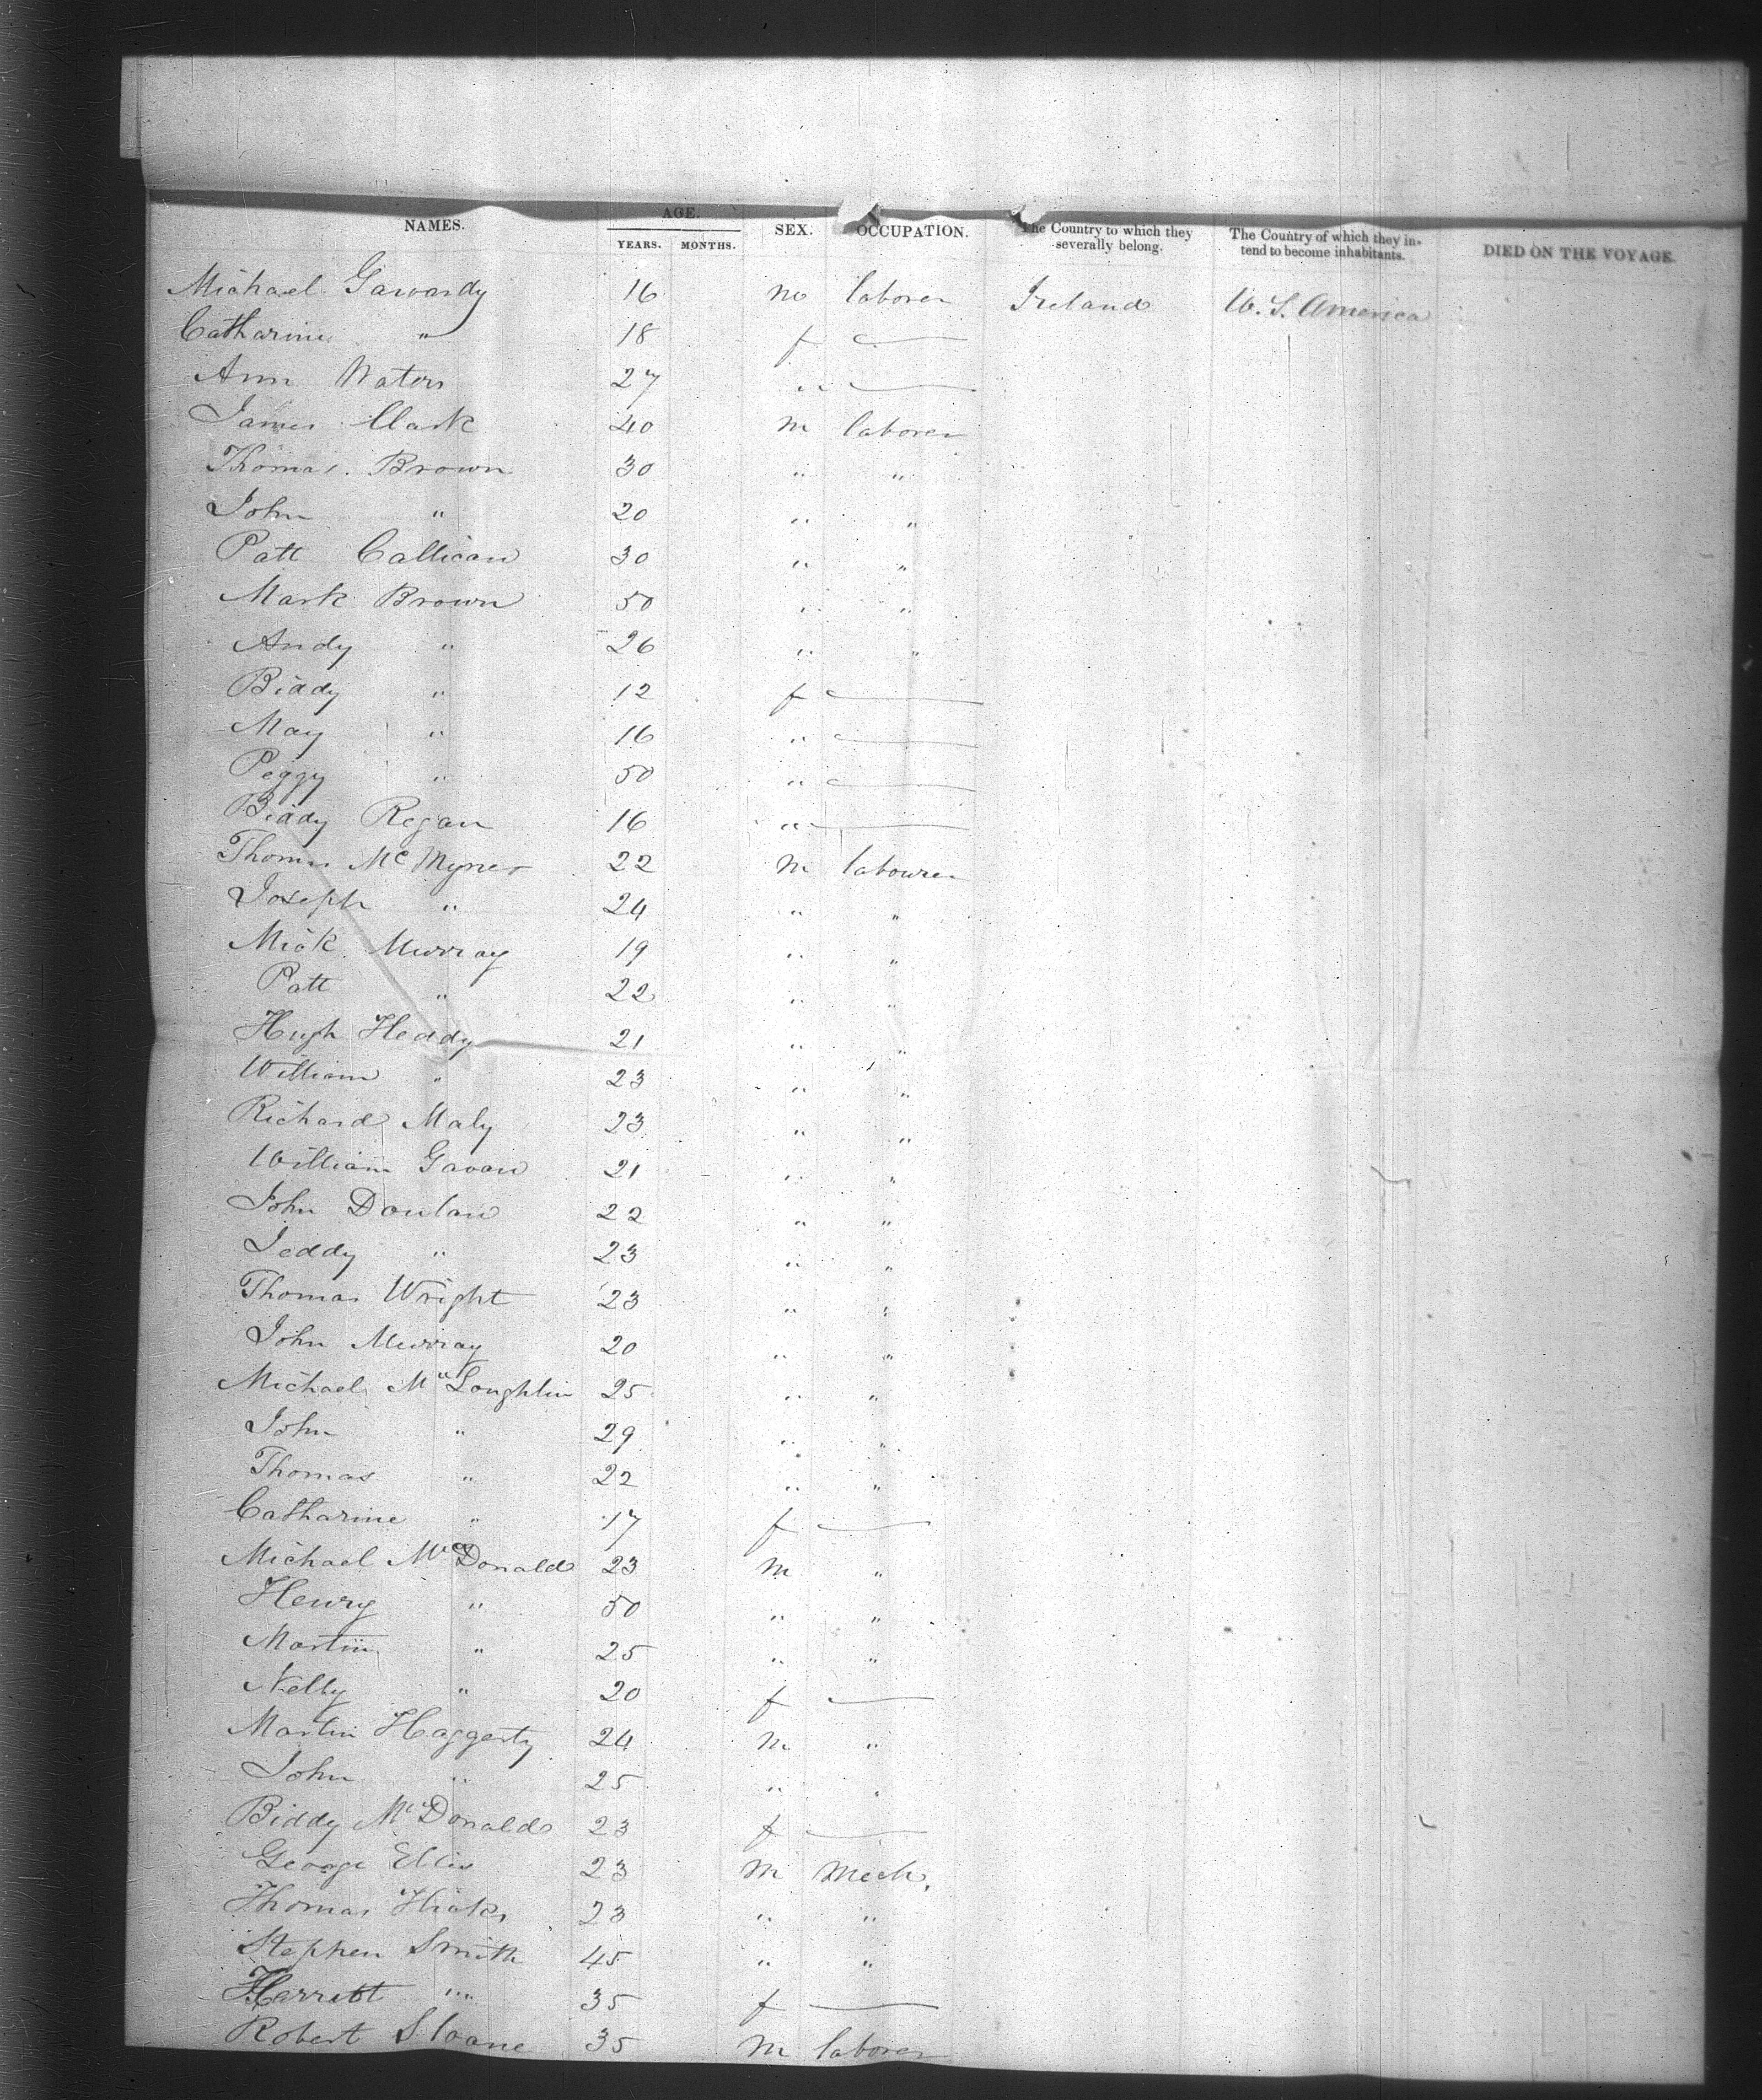 NAMES. AGE. YEARS. MONTHS. SEX. OCCUPATION. The Country to which they severally belong. The Country of which they intend to become inhabitants. DIED ON THE VOYAGE.
Michael Garvardy 16 m laborer Ireland U. S. America
Catharine " 18 f —
Ann Waters 27 " —
James Clark 40 m laborer
Thomas Brown 30 " "
John " 20 " "
Patt Callican 30 " "
Mark Brown 50 " "
Andy " 26 " "
Biddy " 12 f —
May " 16 " —
Peggy " 50 " —
Biddy Regan 16 " —
Thomas Mc Myner 22 m labourer
Joseph " 24 " "
Mick Murray 19 " "
Patt " 22 " "
Hugh Heddy 21 " "
William " 23 " "
Richard Maly 23 " "
William Gavan 21 " "
John Donlan 22 " "
Teddy " 23 " "
Thomas Wright 23 " "
John Murray 20 " "
Michael Mc Loughlin 25 " "
John " 29 " "
Thomas " 22 " "
Catharine " 17 f —
Michael McDonald 23 m "
Henry " 50 " "
Martin " 25 " "
Nelly " 20 f —
Martin Haggerty 24 m "
John " 25 " "
Biddy McDonald 23 f —
George Ellis 23 m Mech.
Thomas Hicks 23 " "
Stephen Smith 45 " "
Harriett " 35 f —
Robert Sloane 35 m laborer